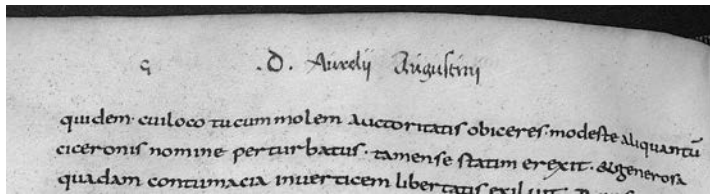 ς .D. Aurelij Augustinj
quidem· cui loco tu cum molem auctoritatis obiceres· modeste aliquantū
ciceronis nomine perturbatus· tamen se statim erexit· & generosa
quadam contumacia in verticem libertatis exiluit·